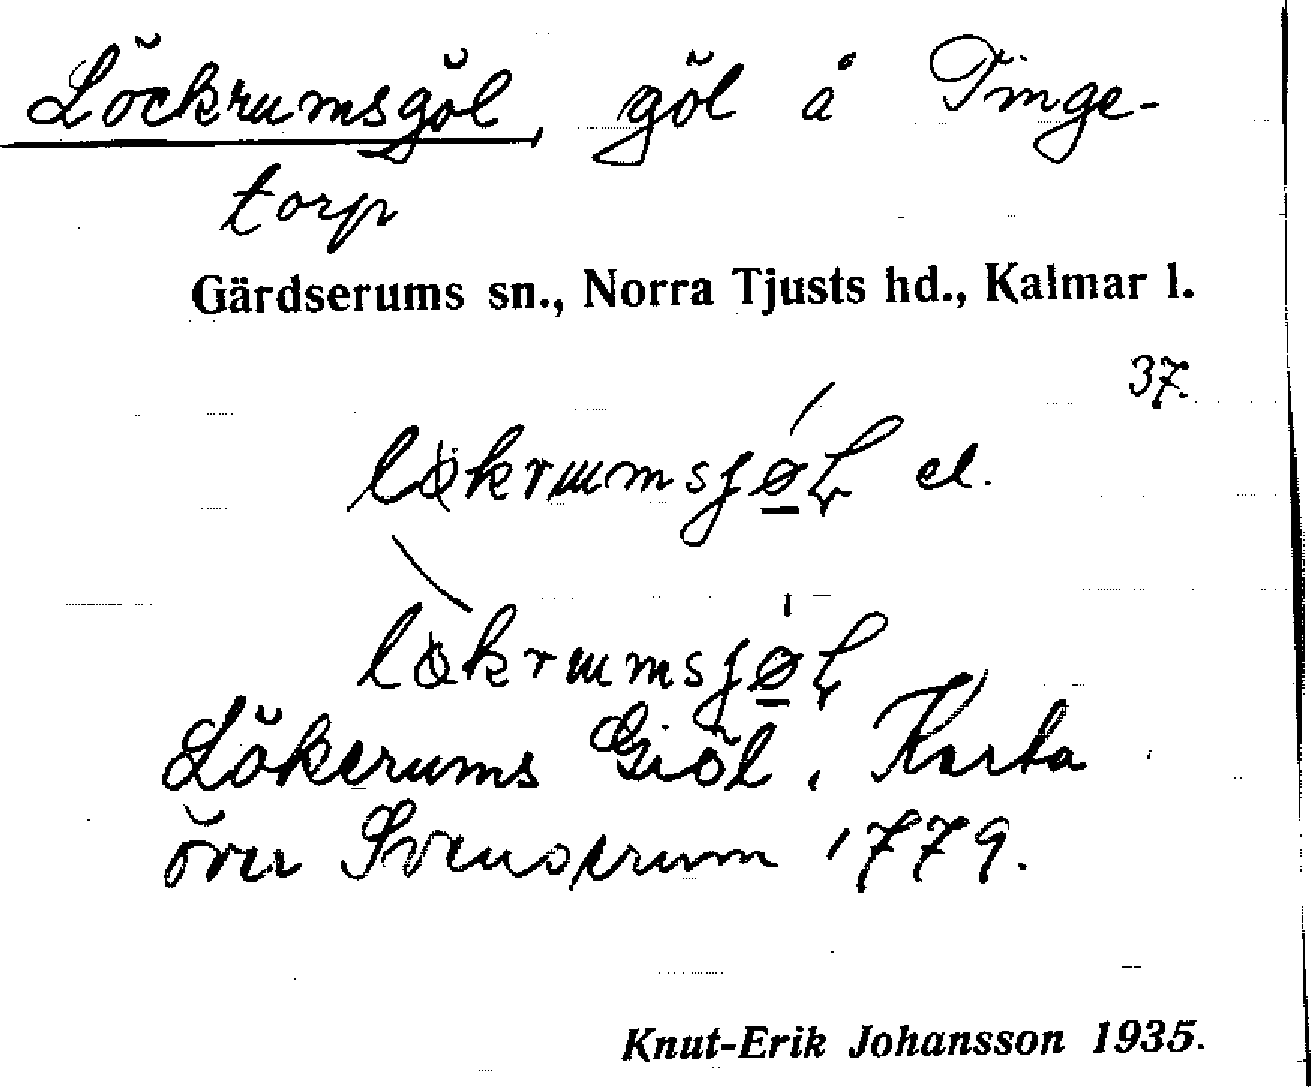 Löckrumsgöl, göl å Tinge-
torp
Gärdserums sn., Norra Tjusts hd., Kalmar l.
37.
el.
Lökerums Giöl, Karta
över Svenserum 1779.
Knut-Erik Johansson 1935.